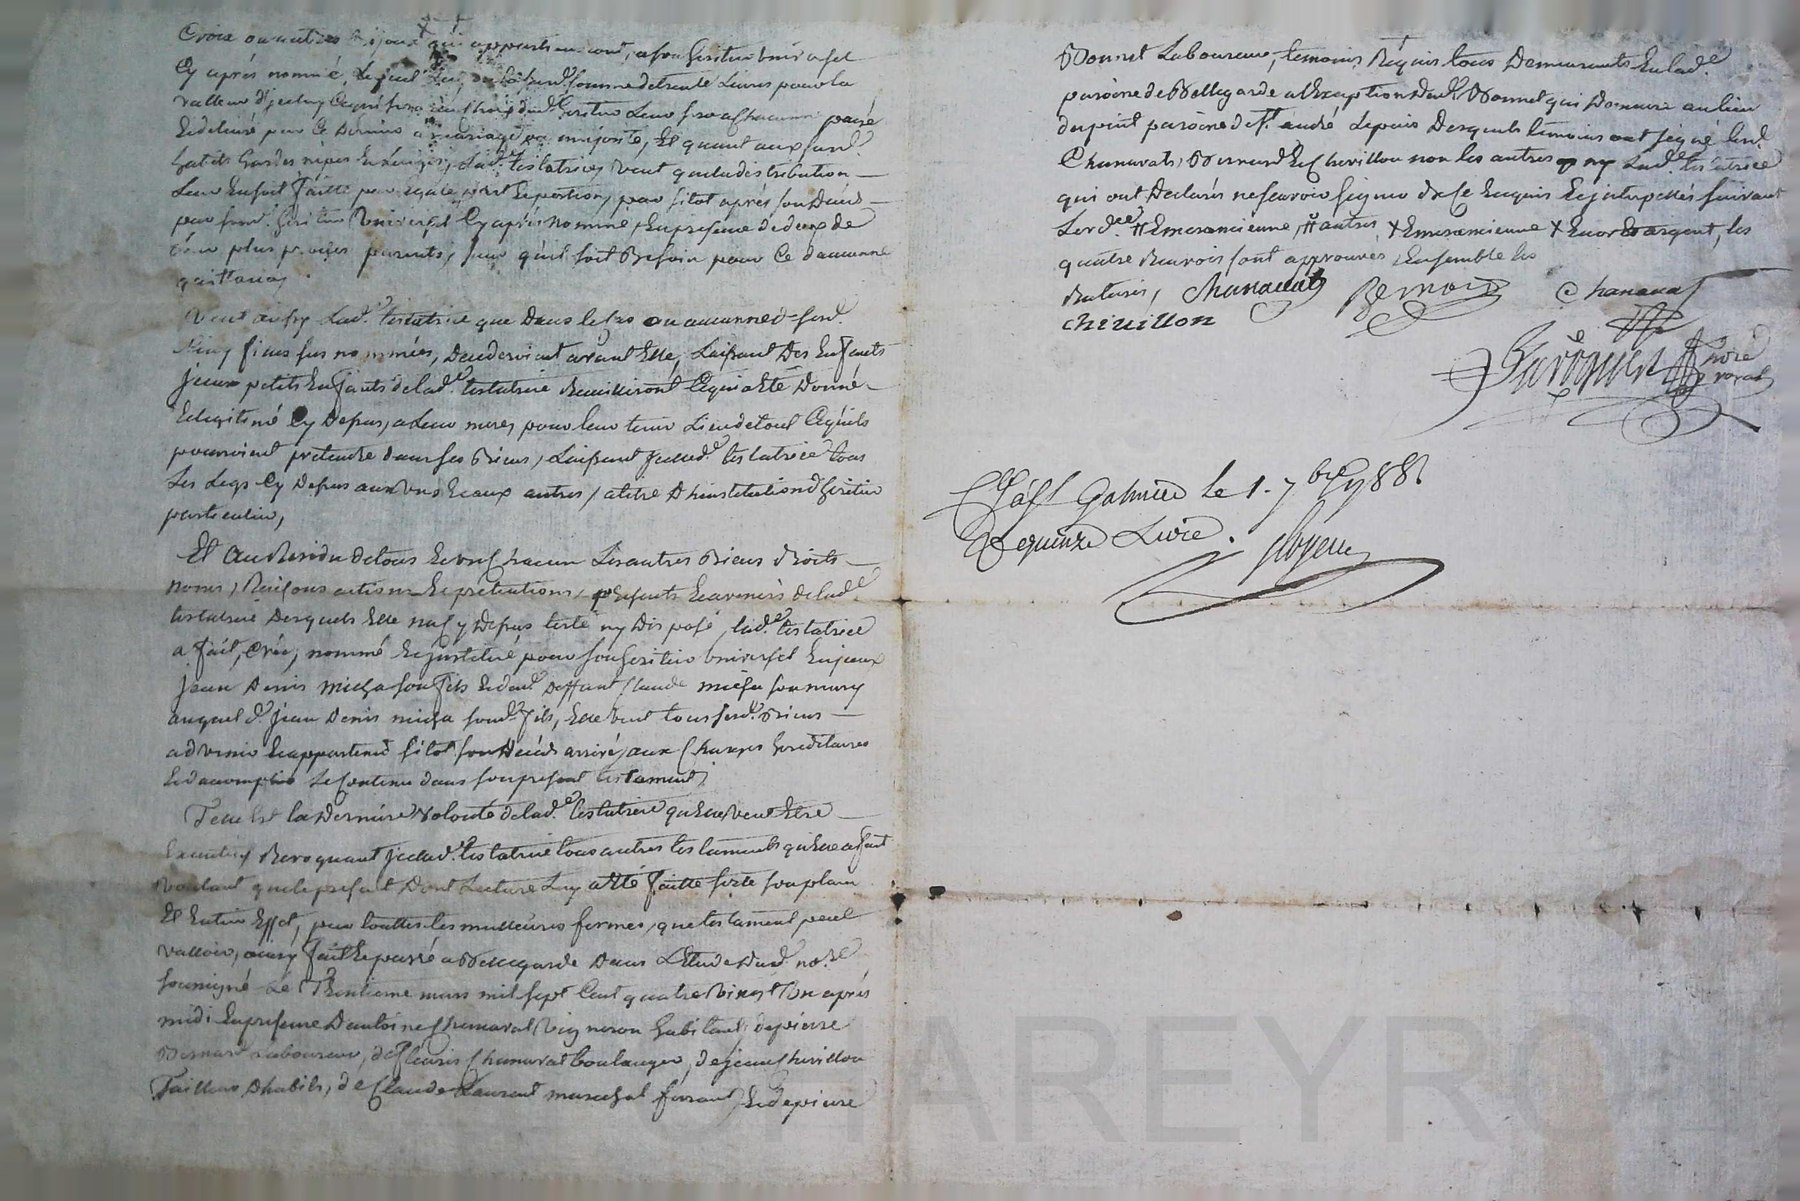 Croix ou autres bijoux qui appartiendront, a son heritier universel
Cy aprés nommé, Le quel la somme de trente Livres pour la
valleur d'jceluy Ce qui sera heritier Leur sera a chacunne payé
Et delivré par Ce Dernier a mariage ou majorité, Et quant aux surd.
habits hardes nipes Et Linges, Lad.e testatrice veut que la distribution
Leur En soit faitte par Egale part Et portion, par sitot aprés son Décés
par sond. heritier Universel Cy aprés nommé, En presence de deux de
leur plus proches parents, sans qu'il soit Besoin pour Ce d'aucunne
quittance.
Veut aussy Lad.e testatrice que Dans le Cas ou aucunne de sesd.
Cinq filles sus nommées, Decederoient avant Elle, Laissant Des Enfants
jceux petits Enfants de lad.e testatrice Recuilliront Ce qui a Eté Donné
Et legitimé Cy Dessus, a Leur mere, pour leur tenir Lieu de tout Ce qu'ils
pourroient pretendre dans ses Biens, Laissant jcelled.e testatrice tous
Les Legs Cy Dessus aux uns Et aux autres, a titre D'hinstitution d'heritier
particulier,
Et Au Residu de tous Et un Chacun Les autres Biens droits
noms, Raisons actions Et pretentions, presents Et avenirs de lad.e
testatrice Desquels Elle n'a Cy Dessus testé ny Disposé, lad.e testatrice
a fait, Créé, nommé Et jnstitué pour son heritier Universel Enjceux
jean Denis micha son fils Et dud. Deffunt Claude micha son mary
auquel d. jean Denis micha sond. fils, Elle veut tous sesd. Biens
advenir Et appartenir sitot son Décés arrivé, aux Charges hereditaires
Et d'accomplir Le Contenu dans son present testament,
Telle Est la Derniere Volonté de lad.e testatrice qu'Elle veut Etre
Executée Revoquant jcelled. testatrice tous autres testaments qu'Elle a fait
Voulant que le present Dont Lecture Luy a Eté faitte sorte son plain
Et Entier Effet, par touttes les meilleures formes, que testament peut
valloir, ainsy fait Et passé a Bellegarde Dans L'Etude Dud. no.re
soussigné Le Trentieme mars mil sept Cent quatre Vingt Un aprés
midi En presence D'antoine Chanavat Vigneron habitant, de pierre
Bernard Laboureur, de fleuris Chanavat boulanger, de jean Chevillon
Tailleur D'habits, de Claude Laurent marechal ferrant, Et de pierre
Bonnet Laboureur, temoins Requis tous Demeurants En lad.e
paroisse de Bellegarde a l'Exception Dud. Bonnet qui Demeure au lieu
paroisse de St. andré Lepuis Desquels temoins ont signé lesd.
Chanavats, Bernard Et Chevillon non les autres ny Lad.e testatrice
qui ont Declarés ne scavoir signer de Ce Enquis Et jnterpellés suivant
Lord.ce autres, Et argent, les
quatre Renvois sont approuvés, Ensemble les
Ratures, Chanavat Bernard Chanavat
chevillon
no.re
royal
Gal Galmier Le 1. 7bre 1788
Reçu quinze Livre.